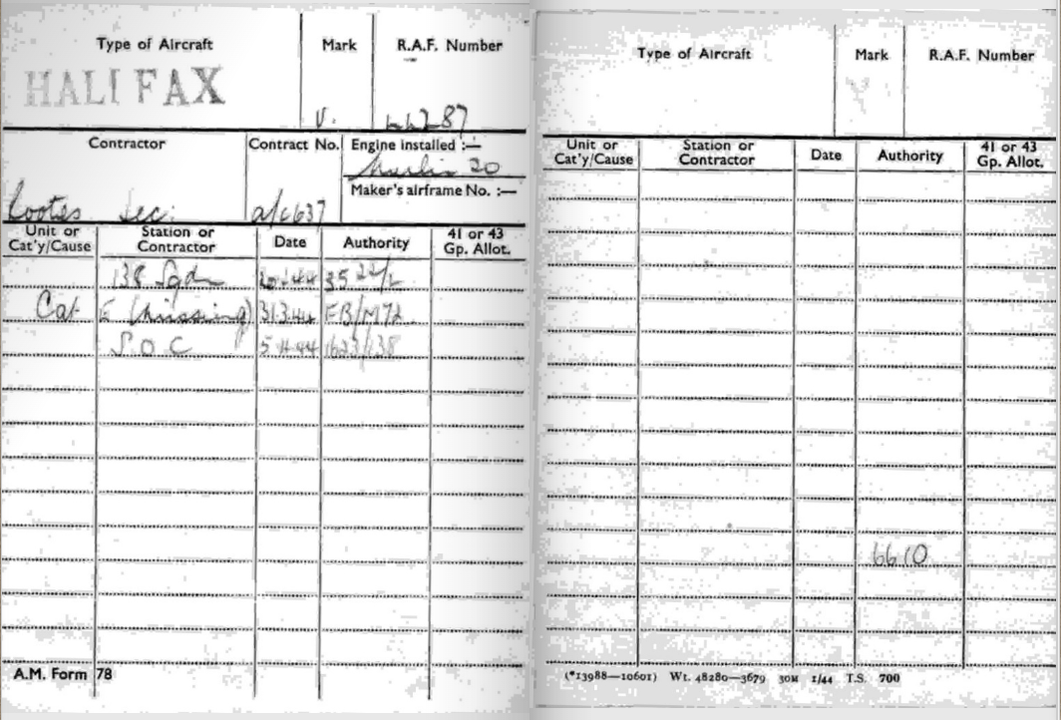 Type of Aircraft Mark R.A.F. Number
HALIFAX V. LL287
Contractor Contract No. Engine installed :—
Merlin 20
Maker's airframe No. :—
Rootes Sec. a/c 637
Unit or Cat'y/Cause Station or Contractor Date Authority 41 or 43 Gp. Allot.
138 Sqdn
Cat E (Missing) 31.3.44 FB/M72
S.O.C 5.4.44
A.M. Form 78
Type of Aircraft Mark R.A.F. Number
Unit or Cat'y/Cause Station or Contractor Date Authority 41 or 43 Gp. Allot.
6610
(*13988—10601) Wt. 48280—3679 30M 1/44 T.S. 700